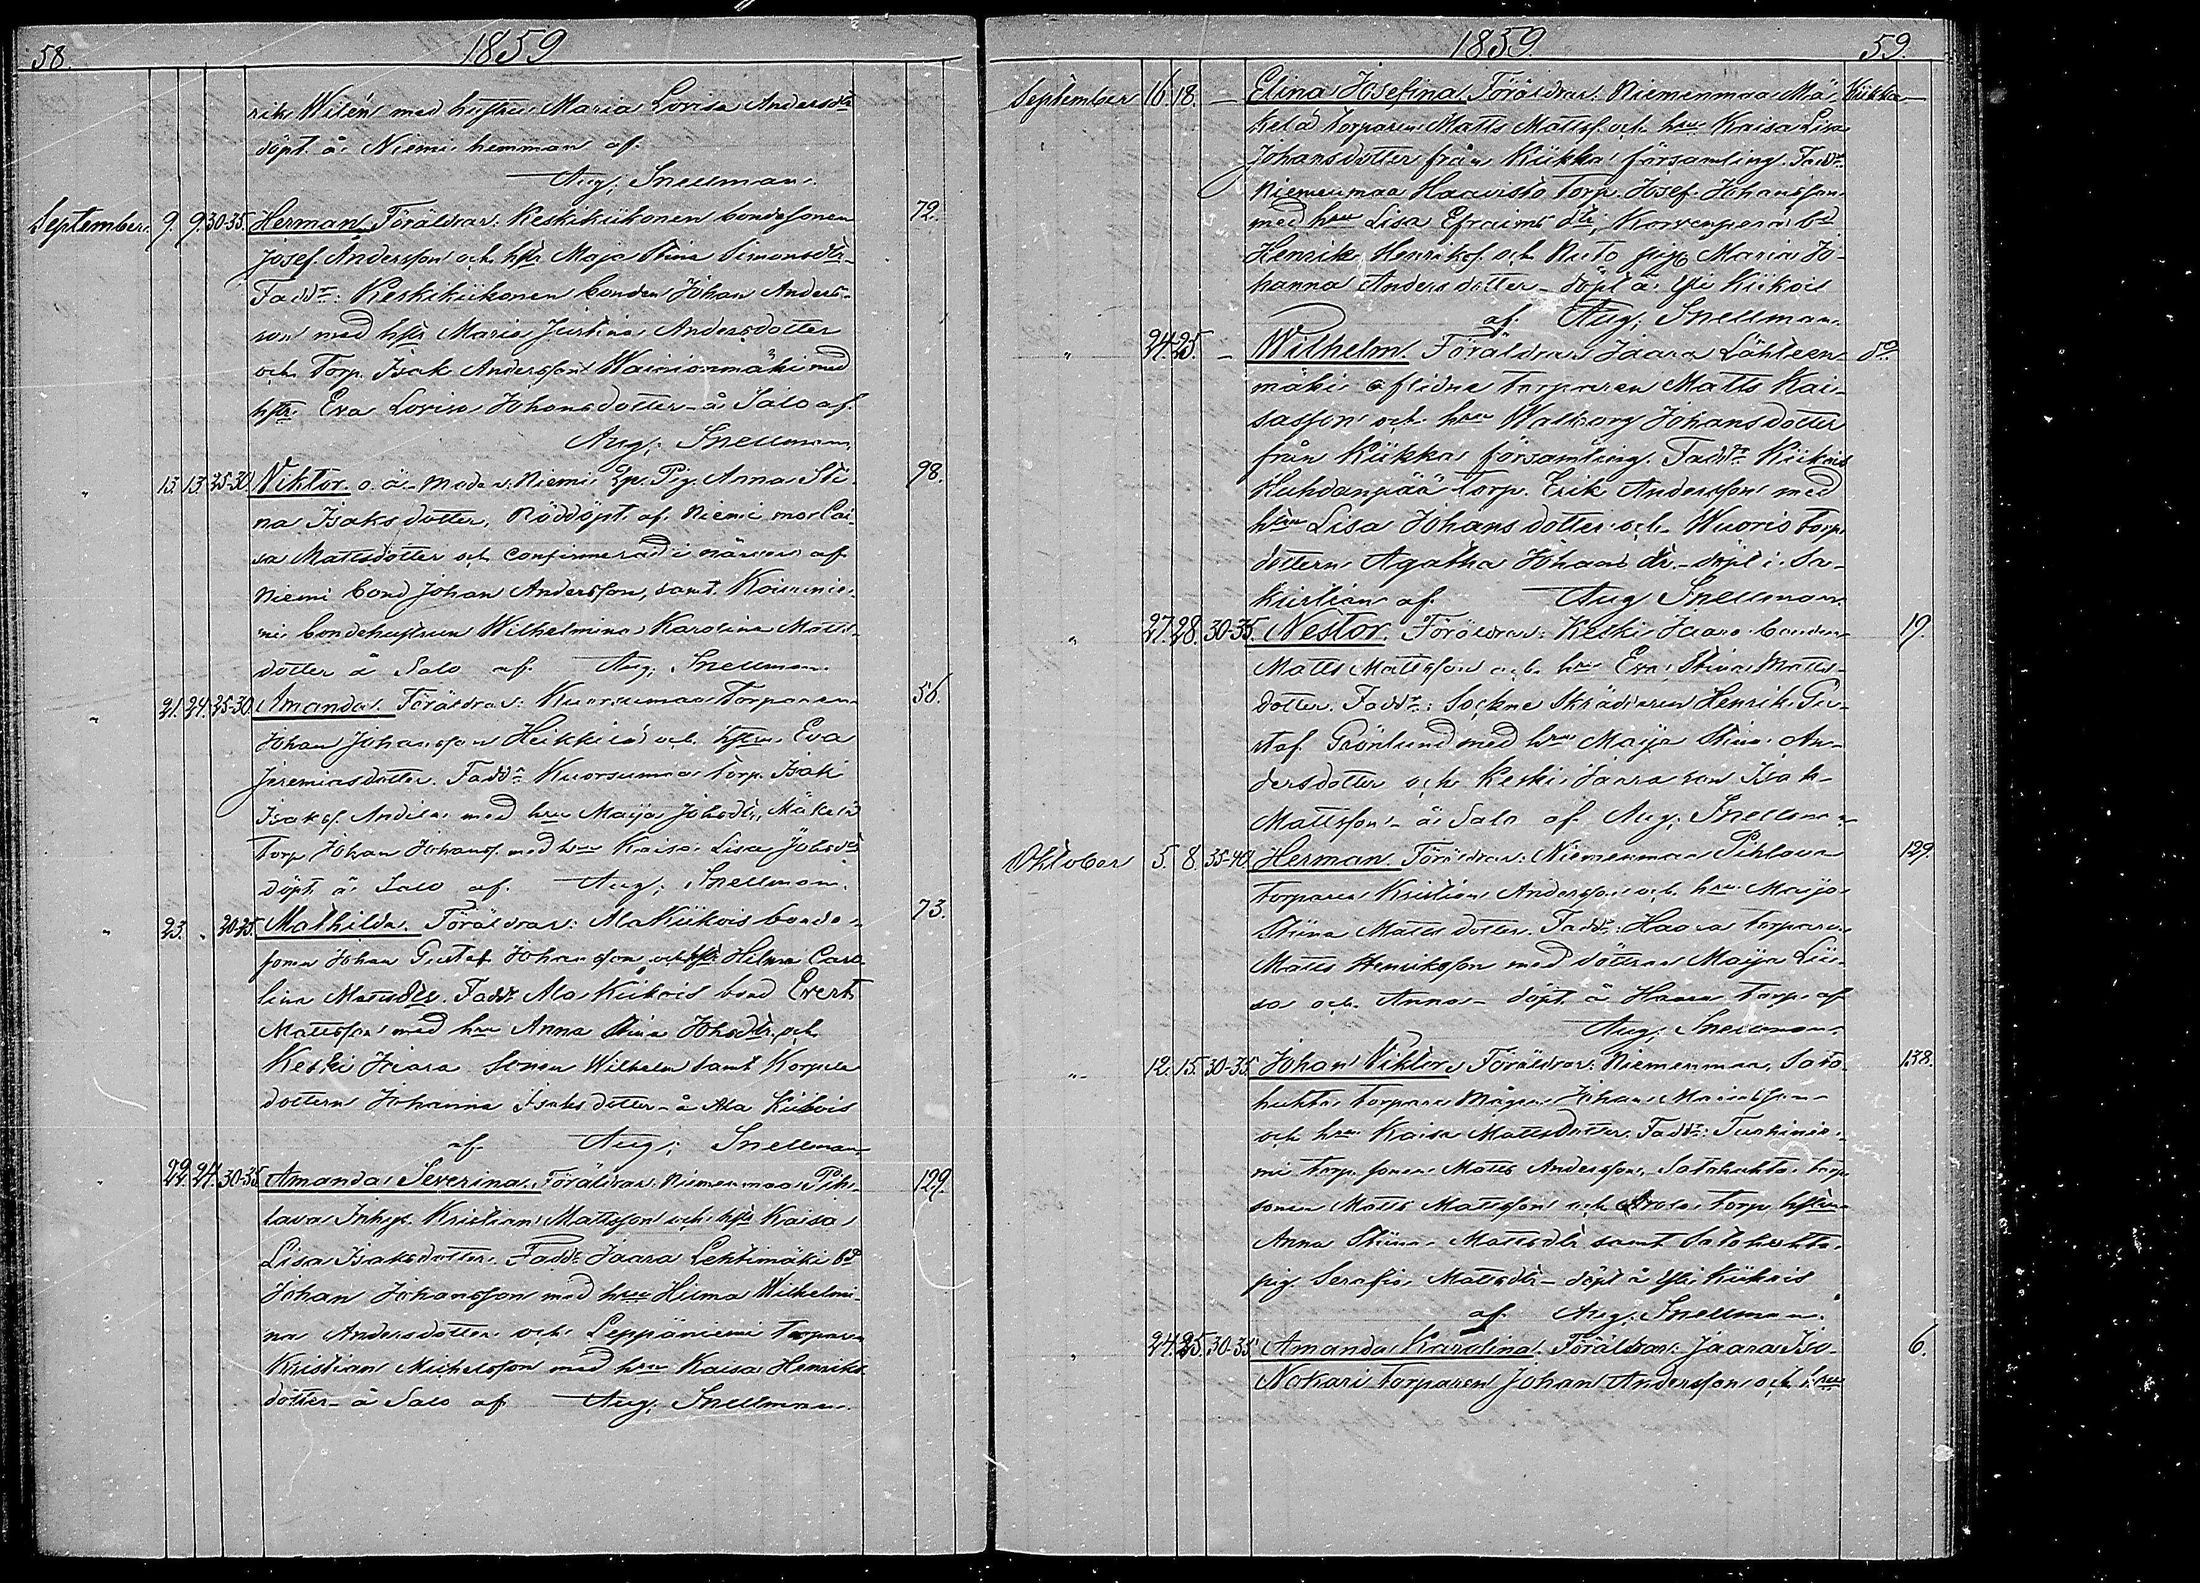 58. 1859
rik Wilén med hustru Maria Lovisa Andersdr
döpt å Niemi hemman af
Aug. Snellman.
September. 9. 9. 30-35. Herman. Föräldrar: Keskikiikonen bondesonen 72.
Josef Andersson och hstr Maja Stina Simonsdr
Faddr: Keskikiikonen bonden Johan Anders-
son med hstr Maria Justina Andersdotter
och Torp. Isak Andersson Wainionmäki med
hstr Eva Lovisa Johansdotter å Salo af
Aug. Snellman
" 13. 13. 25-30 Viktor. o.ä. Moder: Niemi Pig. Anna Sti- 98.
na Isaksdotter, Nöddöpt af Niemi mor Cai-
sa Mattsdotter och confirmerad i närvaro af
Niemi bond Johan Andersson, samt
ni bondehustrun Wilhelmina Karolina Matts-
dotter å Salo af Aug. Snellman.
" 21. 24. 25-30. Amanda. Föräldrar: Kuorsumaa Torparen 56.
Johan Johansson Heikkilä och hstrn Eva
Jeremiasdotter. Faddr Kuorsumaa Torp. Isak
Isaks. Andila med hru Maija Johsdr, Mäkelä
Torp. Johan Johanss. med hru Kaisa Lisa Johsdr
döpt å Salo af Aug. Snellman.
" 23. " 20-25. Mathilda. Föräldrar: AlaKiikois bonde- 73.
sonen Johan Gustaf Johansson och hstr Helena Caro-
lina Mattsdtr. Faddr Ala Kiikois bond Evert
Mattsson med hru Anna Stina Johsdtr och
Keski Jaara sonen Wilhelm samt Korpela
dottern Johanna Isaksdotter å Ala Kiikois
af Aug. Snellman
" 22. 24. 30-35. Amanda Severina. Föräldrar: Niemenmaa Pih- 129.
lava Inhys. Kristian Mattsson och hstr Kaisa
Lisa Isaksdotter. Faddr Jaara Lehtimäki bd
Johan Johansson med hru Hilma Wilhelmi-
na Andersdotter och Leppäniemi Torparen
Kristian Michelsson med hru Kaisa Henriks-
dotter å Salo af Aug. Snellman.
1859. 59.
September 16. 18. — Elina Josefina. Föräldrar: Niemenmaa Mä- Kiikka
kelä torparen Matts Mattss. och hru Kaisa Lisa
Johansdotter från Kiikka församling. Faddr
Niemenmaa Haavisto Torp. Josef Johansson
med hru Lisa Efraims dtr, Korvenperä bd
Henrik Henrikss. och Ruto pig. Maria Jo-
hanna Andersdotter - döpt å Yli Kiikois
af Aug. Snellman.
" 24. 25. — Wilhelm. Föräldrar Jaara Lähteen- do
mäki aflidne torparen Matts Kai-
sasson och hru Walborg Johansdotter
från Kiikka församling. Faddr Kiikois
Huhdanpää Torp. Erik Andersson med
hru Lisa Johansdotter och Wuorio Torp.
dottern Agatha Johans dr. - döpt i Sa-
kristian af Aug. Snellman
" 27. 28. 30-35. Nestor. Föräldrar: Keski Jaara bonden 17.
Matts Mattsson och hru Eva Stina Matts-
dotter. Faddr: Sockne Skräddaren Henrik Gu-
staf Grönlund med hru Maija Stina An-
dersdotter och Keski Jaara son Isak
Mattsson - å Salo af Aug. Snellman
Oktober 5. 8. 35-40 Herman. Föräldrar: Niemenmaa Pihlava 129.
torparen Kristian Andersson och hru Maija
Stina Mattsdotter. Faddr: Haavia torparen
Matts Henriksson med döttrar Maija Lii-
sa och Anna - döpt å Haavia torp af
Aug. Snellman
" 12. 15. 30-35. Johan Viktor. Föräldrar: Niemenmaa Sato- 138.
huhta torpare Mågen Johan
och hru Kaisa Mattsdotter. Faddr:
mi torp. sonen Matts Andersson, Satohuhta torp.
sonen Matts Mattsson och torp. hstrn
Anna Stina Mattsdtr samt Satohuhta
pig. Serafia Mattsdtr - döpt å Yli Kiikois
af Aug. Snellman.
" 24. 25. 30-35 Amanda Karolina. Föräldrar: Jaara Iso- 6.
Nokari torparen Johan Andersson och hru